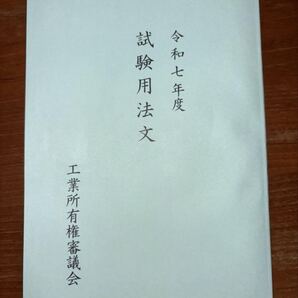 令和七年度
試験用法文
工業所有権審議会